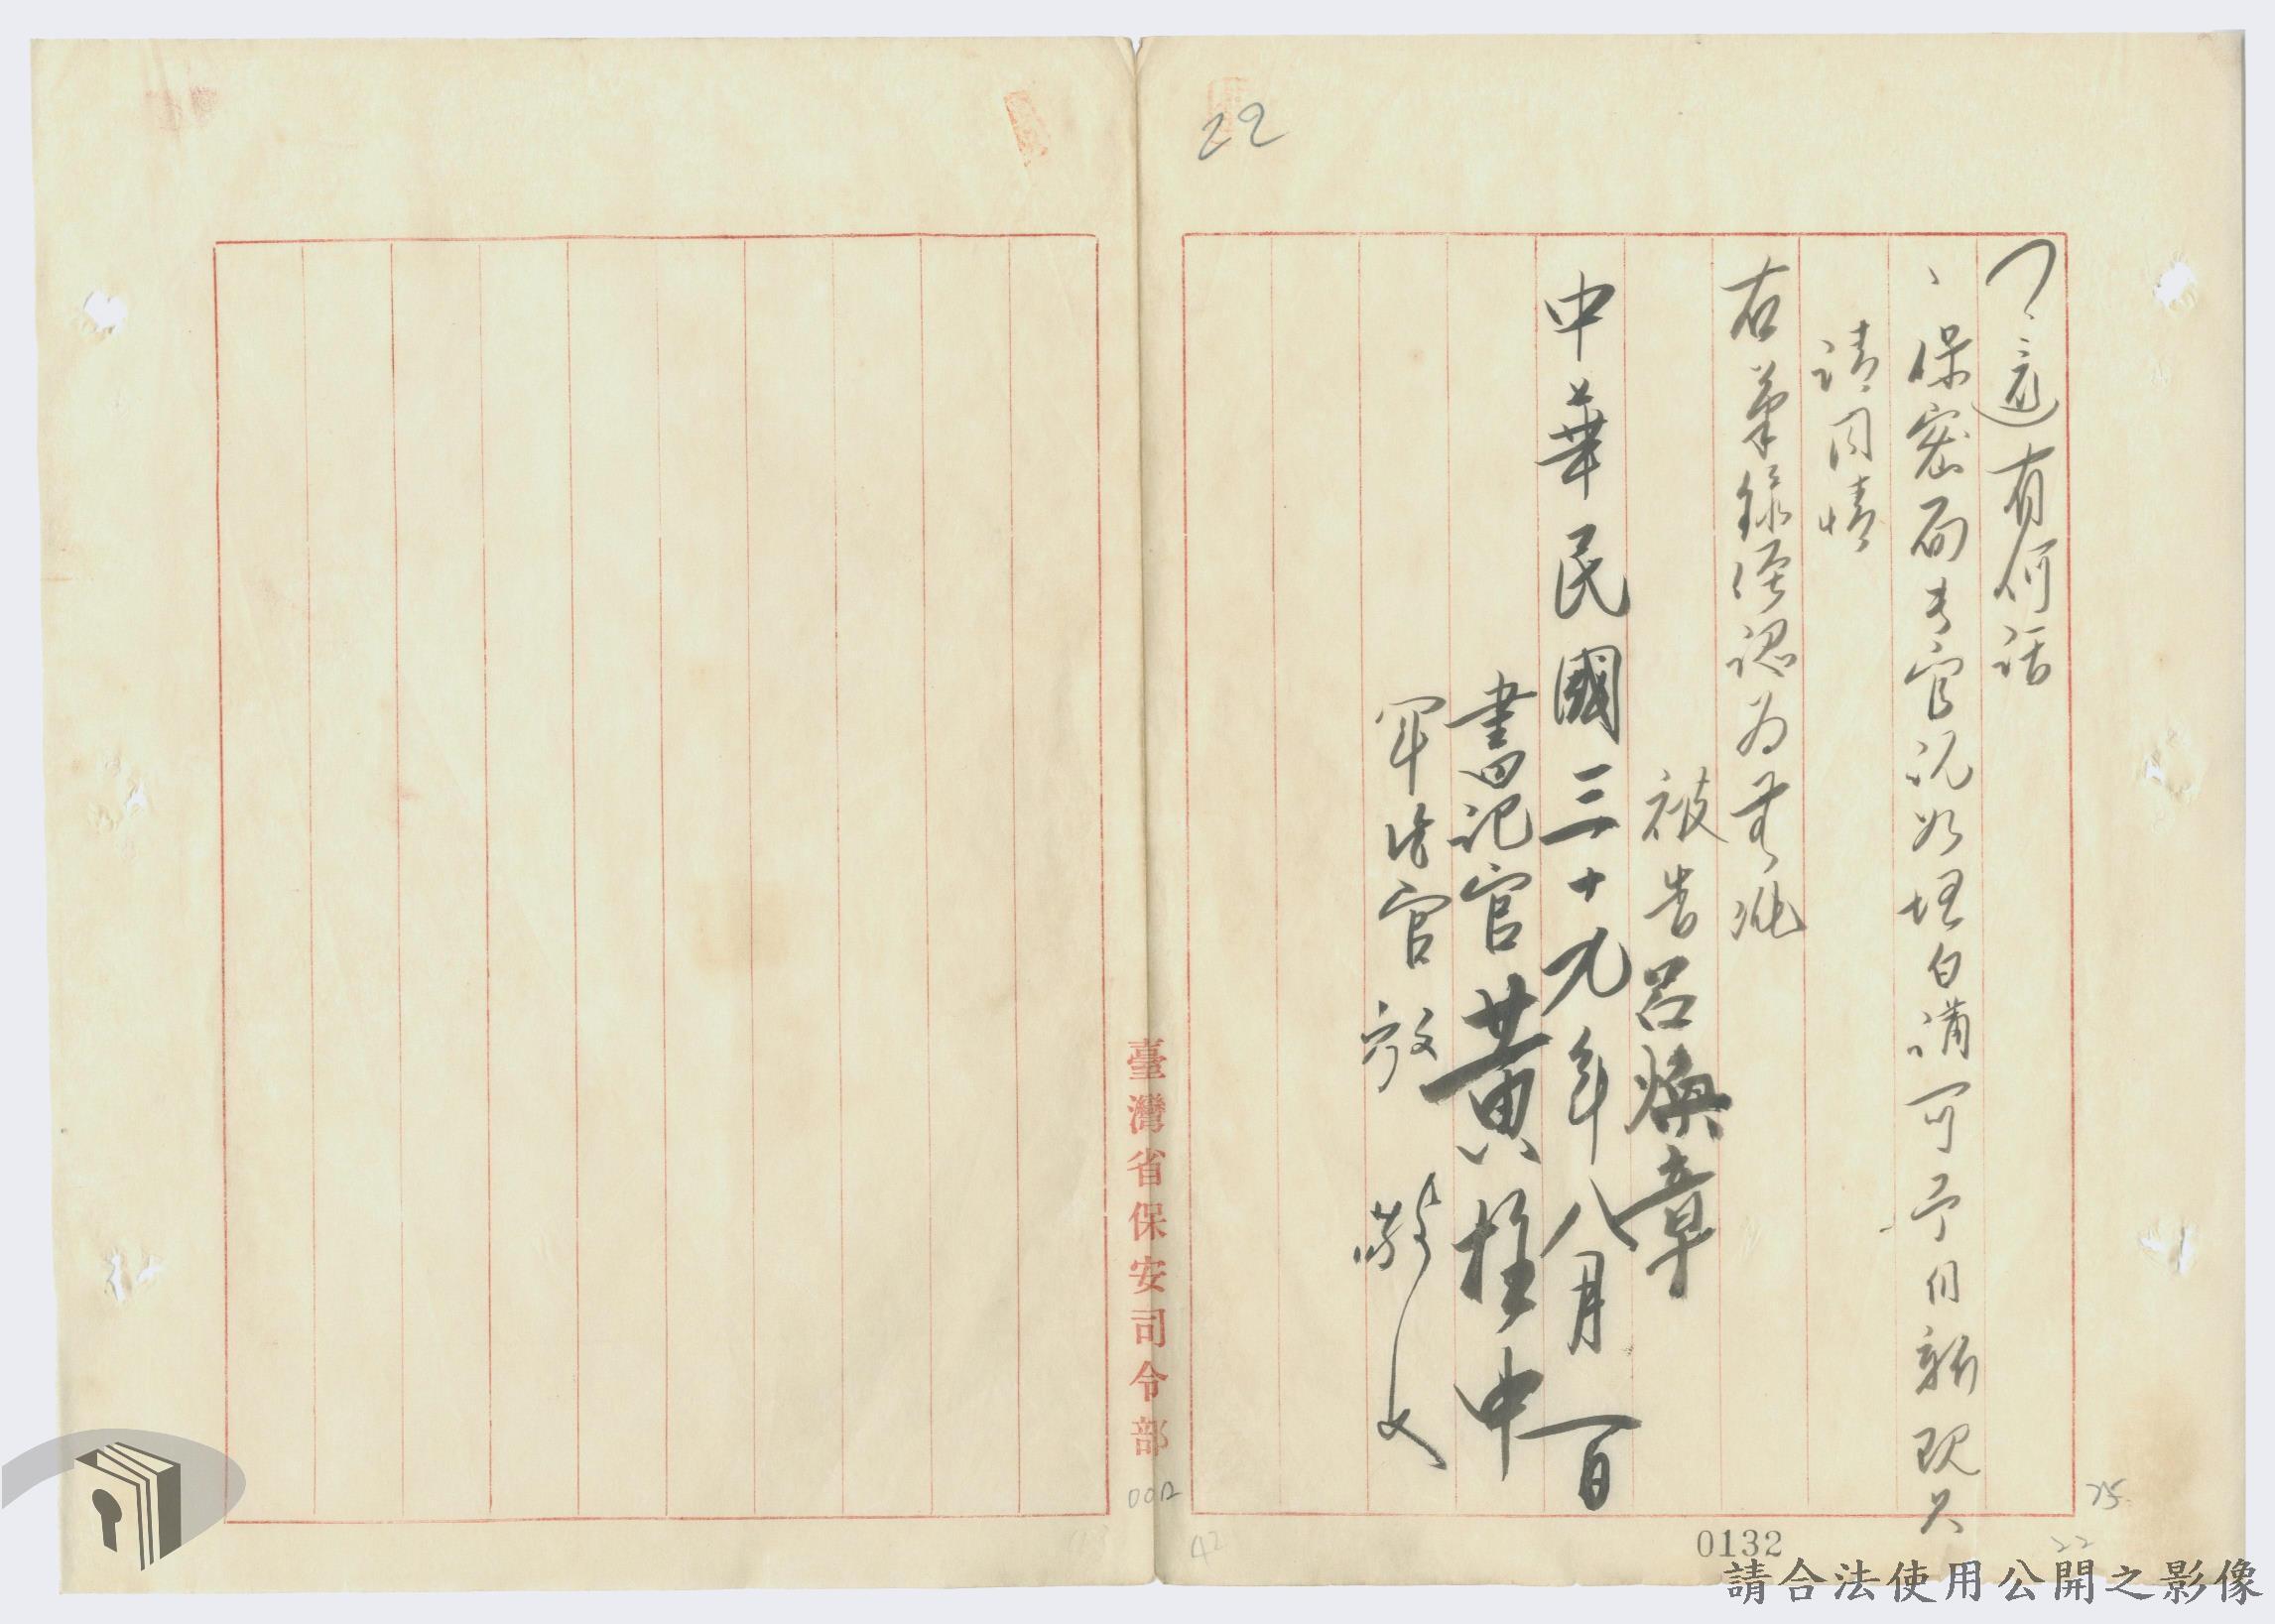 22
還有何話
保密局長官説如坦白講可予自新現只
請同情
右筆錄經認為無訛
被告呂煥章
中華民國三十九年八月一日
書記官黃桂中
軍法官
臺灣省保安司令部
0132
75
22
42
請合法使用公開之影像